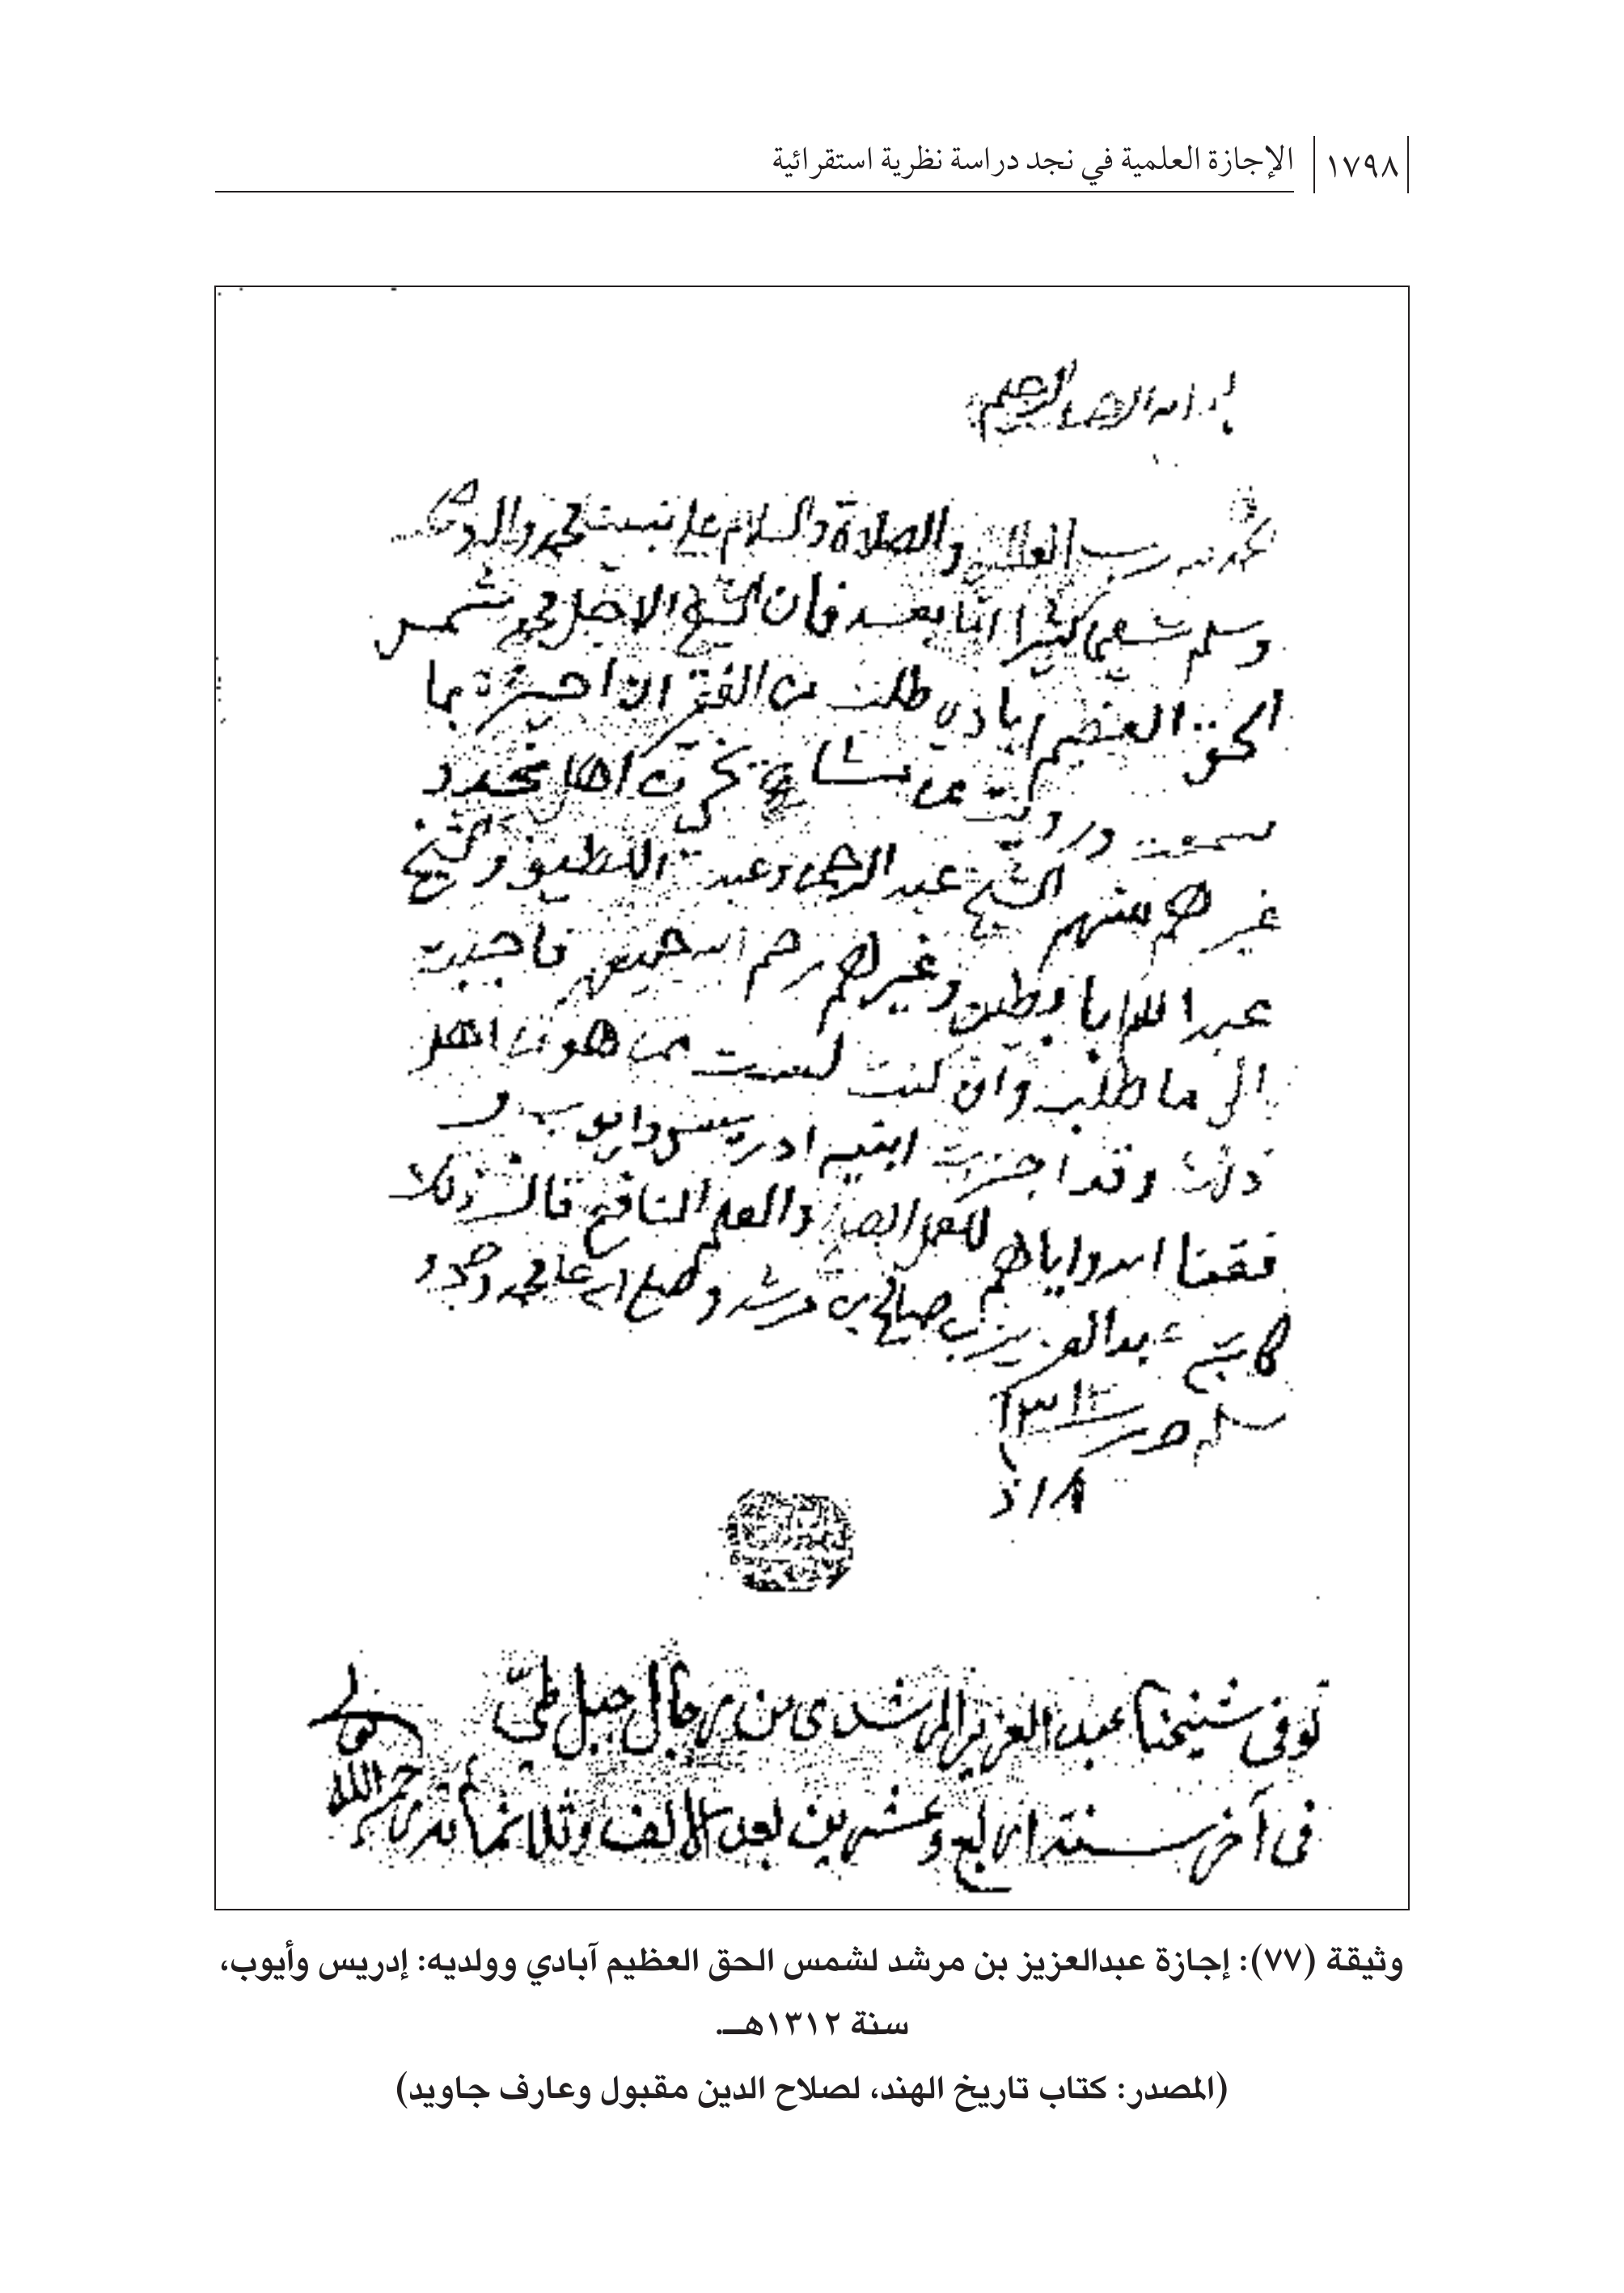 ١٧٩٨ الإجازة العلمية في نجد دراسة نظرية استقرائية
الرحمن الرحيم
رب العالمين والصلاة والسلام على نبينا محمد واله وصحبه
وسلم كثيرا اما بعد فان الشيخ الاجل محمد شمس
الحق العضيم ابادي طلب من الفقير ان اجيزه بما
سمعت ورويت عن مشايخي اهل نجد و
غيرهم منهم الشيخ عبد الرحمن وعبد اللطيف والشيخ
عبد الله ابا بطين وغيرهم رحمهم الله فاجبت
الى ما طلب وان كنت لست ممن هو من اهل
ذلك وقد اجزت ابنيه ادريس وايوب و
فقنا الله واياهم للعمل الصالح والعلم النافع قال ذلك
كاتبه عبد العزيز بن صالح بن مرشد وصلى الله على محمد وصحبه و
سلم حرر ١٣١٢
توفى شيخنا عبد العزيز المرشدى من رجال جبل طيّ
فى آخر سنة اربع وعشرين بعد الالف وثلاثمائة رحمه الله
وثيقة (٧٧): إجازة عبدالعزيز بن مرشد لشمس الحق العظيم آبادي وولديه: إدريس وأيوب،
سنة ١٣١٢هـ.
(المصدر: كتاب تاريخ الهند، لصلاح الدين مقبول وعارف جاويد)